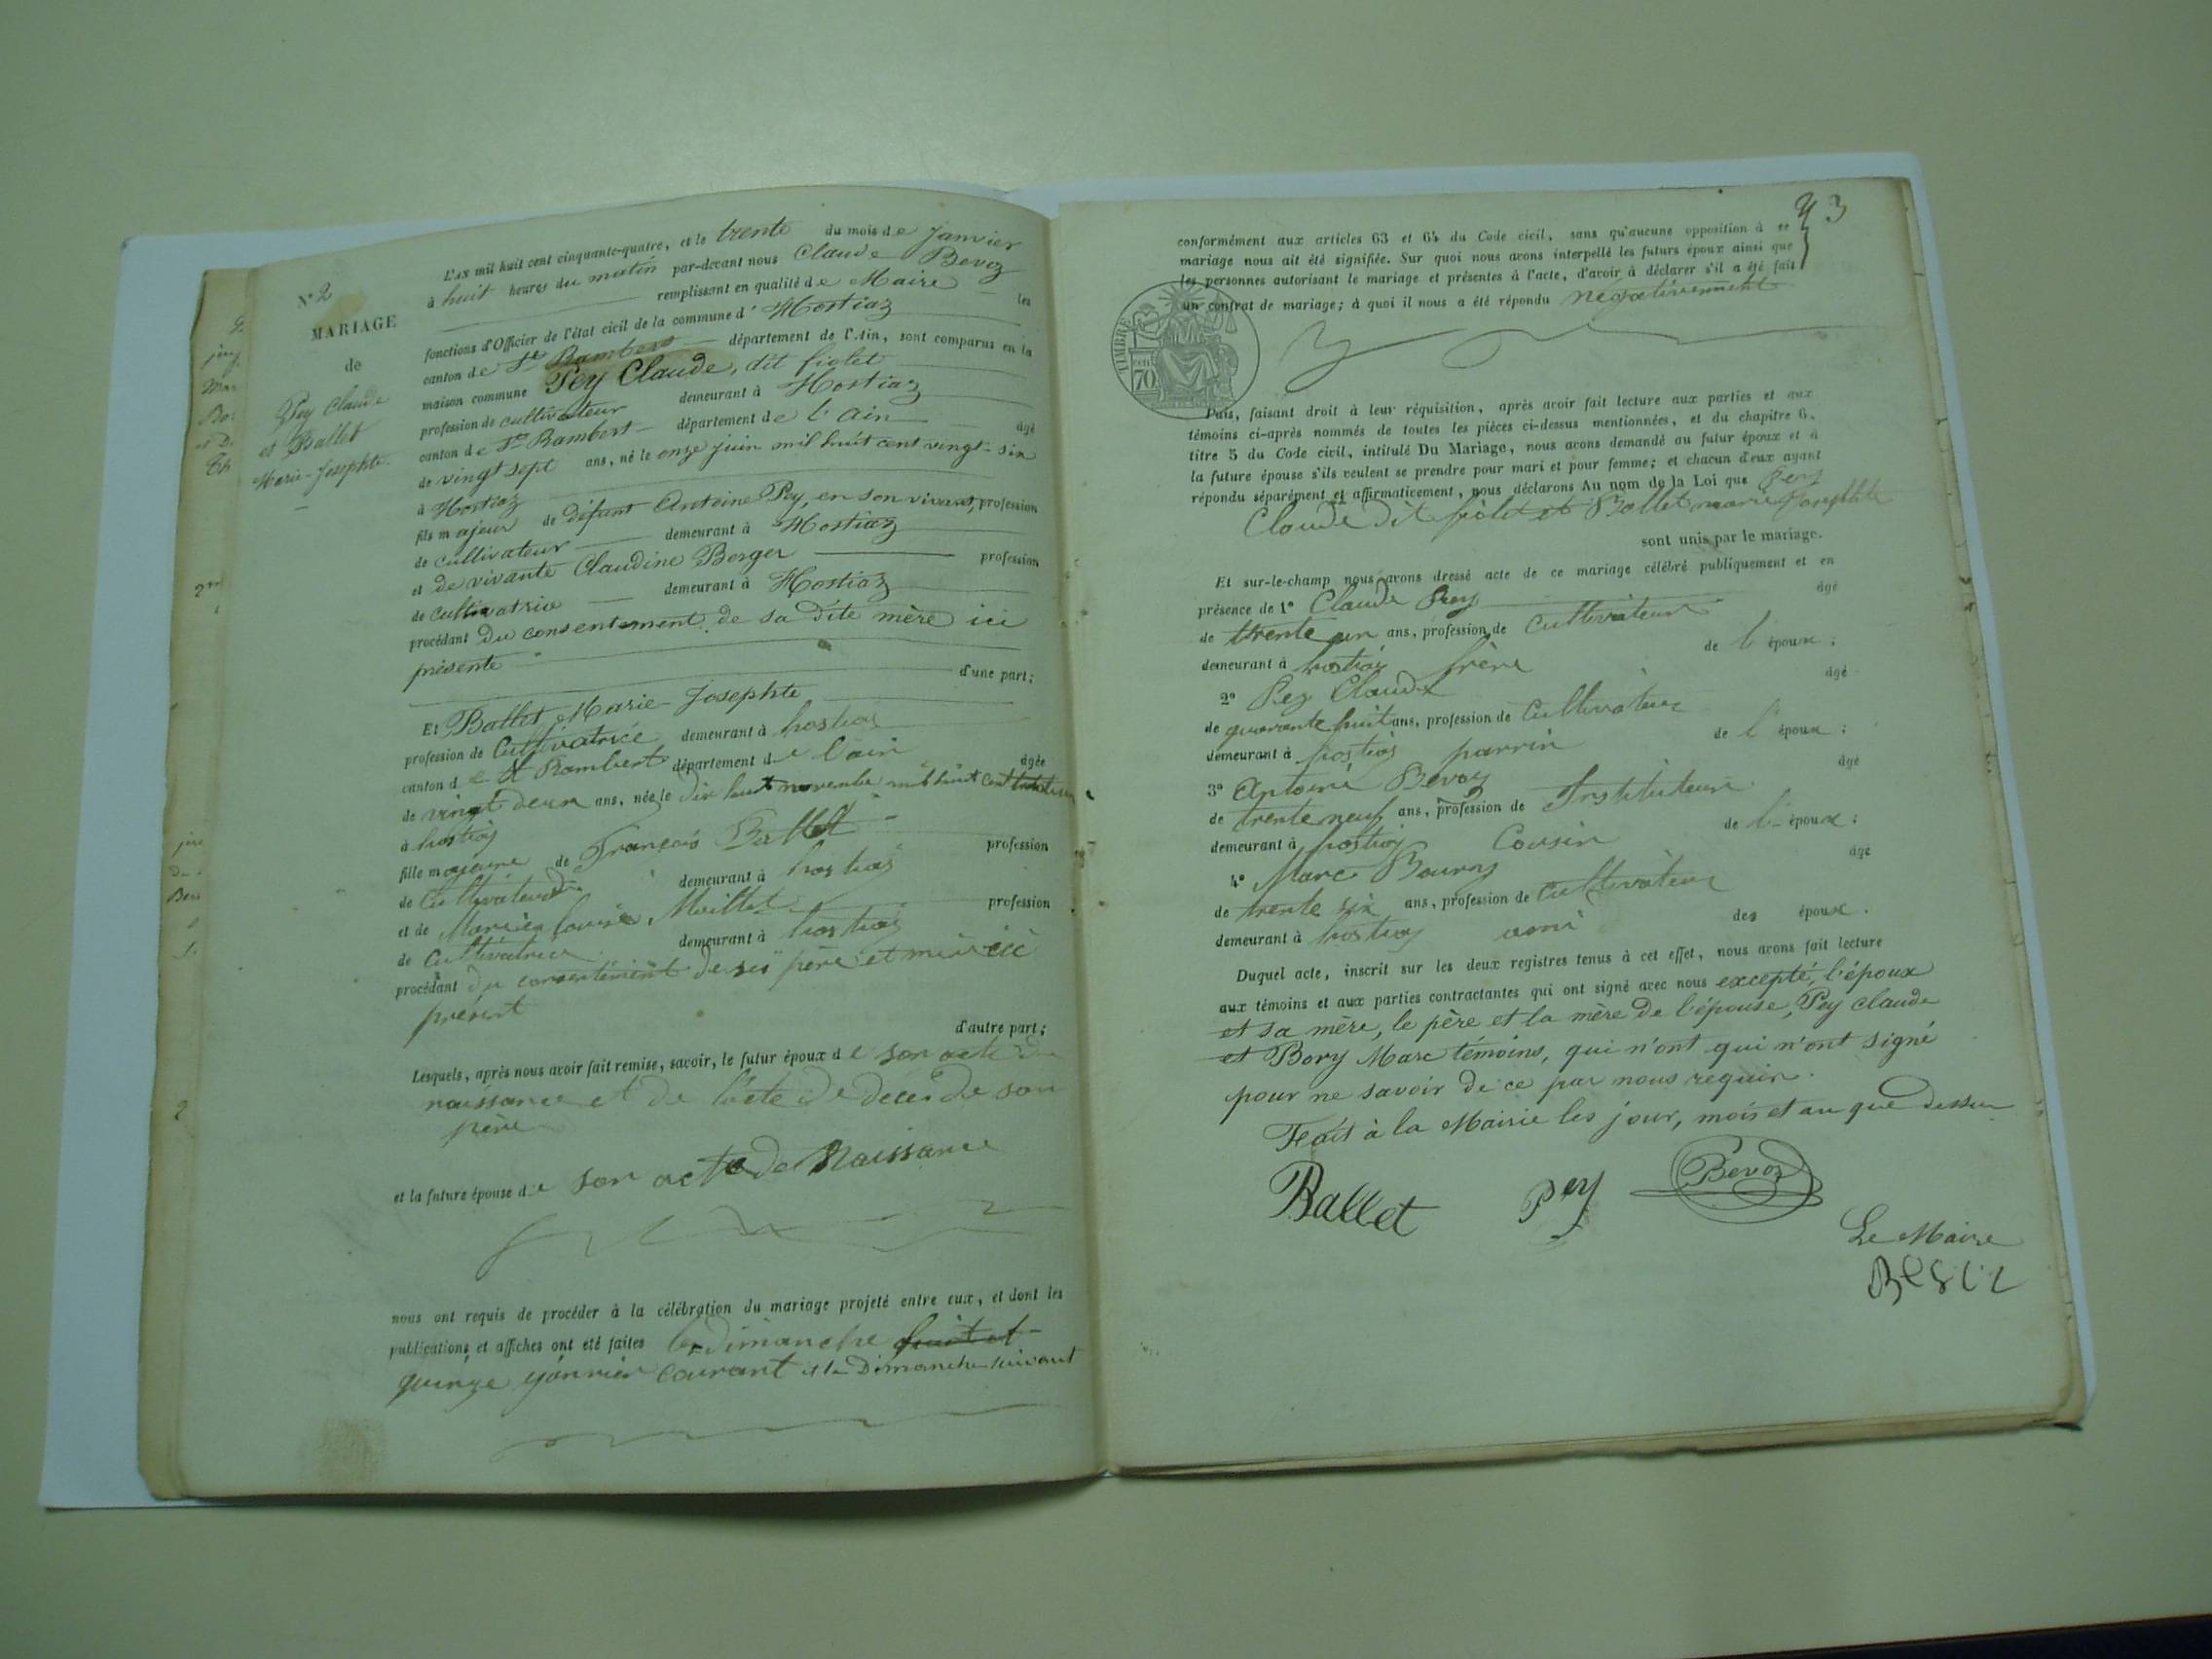 N° 2
MARIAGE
de
Pey Claude
et Ballet
Marie-Josephte.
L'AN mil huit cent cinquante-quatre, et le trente du mois de Janvier
à huit heures du matin par-devant nous Claude Bevoz
remplissant en qualité de Maire les
fonctions d'Officier de l'état civil de la commune d'Hostiaz
canton de St Rambert département de l'Ain, sont comparus en la
maison commune Pey Claude, dit fiolet
profession de cultivateur demeurant à Hostiaz
canton de St Rambert département de l'ain âgé
de vingt sept ans, né le onze juin mil huit cent vingt-six
à Hostiaz
fils majeur de défunt Antoine Pey, en son vivant, profession
de cultivateur demeurant à Hostiaz
et de vivante Claudine Berger profession
de cultivatrice demeurant à Hostiaz
procédant du consentement de sa dite mère ici
présente
d'une part;
Et Ballet Marie-Josephte
profession de Cultivatrice demeurant à hostiaz
canton de St Rambert département de l'ain âgée
de vingt deux ans, née le dix huit novembre mil huit cent
à hostiaz
fille majeure de François Ballet profession
de Cultivateur demeurant à hostiaz
et de Louise Maillet profession
de Cultivatrice demeurant à hostiaz
procédant du consentement de ses père et mère ici
présent
d'autre part;
Lesquels, après nous avoir fait remise, savoir, le futur époux de son acte de
naissance et de l'acte de decer de son
père
et la future épouse de son acte de Naissance
nous ont requis de procéder à la célébration du mariage projeté entre eux, et dont les
publications et affiches ont été faites le dimanche huit et
quinze janvier courant et le Dimanche suivant
3
conformément aux articles 63 et 64 du Code civil, sans qu'aucune opposition à ce
mariage nous ait été signifiée. Sur quoi nous avons interpellé les futurs époux ainsi que
les personnes autorisant le mariage et présentes à l'acte, d'avoir à déclarer s'il a été fait
un contrat de mariage; à quoi il nous a été répondu négativement
TIMBRE
70 cent
Puis, faisant droit à leur réquisition, après avoir fait lecture aux parties et aux
témoins ci-après nommés de toutes les pièces ci-dessus mentionnées, et du chapitre 6,
titre 5 du Code civil, intitulé Du Mariage, nous avons demandé au futur époux et à
la future épouse s'ils veulent se prendre pour mari et pour femme; et chacun d'eux ayant
répondu séparément et affirmativement, nous déclarons Au nom de la Loi que Pey
Claude dit fiolet et Ballet marie Josephte
sont unis par le mariage.
Et sur-le-champ nous avons dressé acte de ce mariage célébré publiquement et en
présence de 1° Claude Pey âgé
de trente un ans, profession de Cultivateur
demeurant à hostiaz frère de l'époux;
2° Pey Claude âgé
de quarante huit ans, profession de Cultivateur
demeurant à hostiaz parrin de l'époux;
3° Antoine Bevoz âgé
de trente neuf ans, profession de Instituteur
demeurant à hostiaz Cousin de l'époux;
4° Marc Boury âgé
de trente six ans, profession de Cultivateur
demeurant à hostiaz ami des époux.
Duquel acte, inscrit sur les deux registres tenus à cet effet, nous avons fait lecture
aux témoins et aux parties contractantes qui ont signé avec nous excepté, l'époux
et sa mère, le père et la mère de l'épouse, Pey Claude
et Bory Marc témoins, qui n'ont qui n'ont signé
pour ne savoir de ce par nous requir.
Fait à la Mairie les jour, mois et an que dessus
Ballet Pey Bevoz
Le Maire